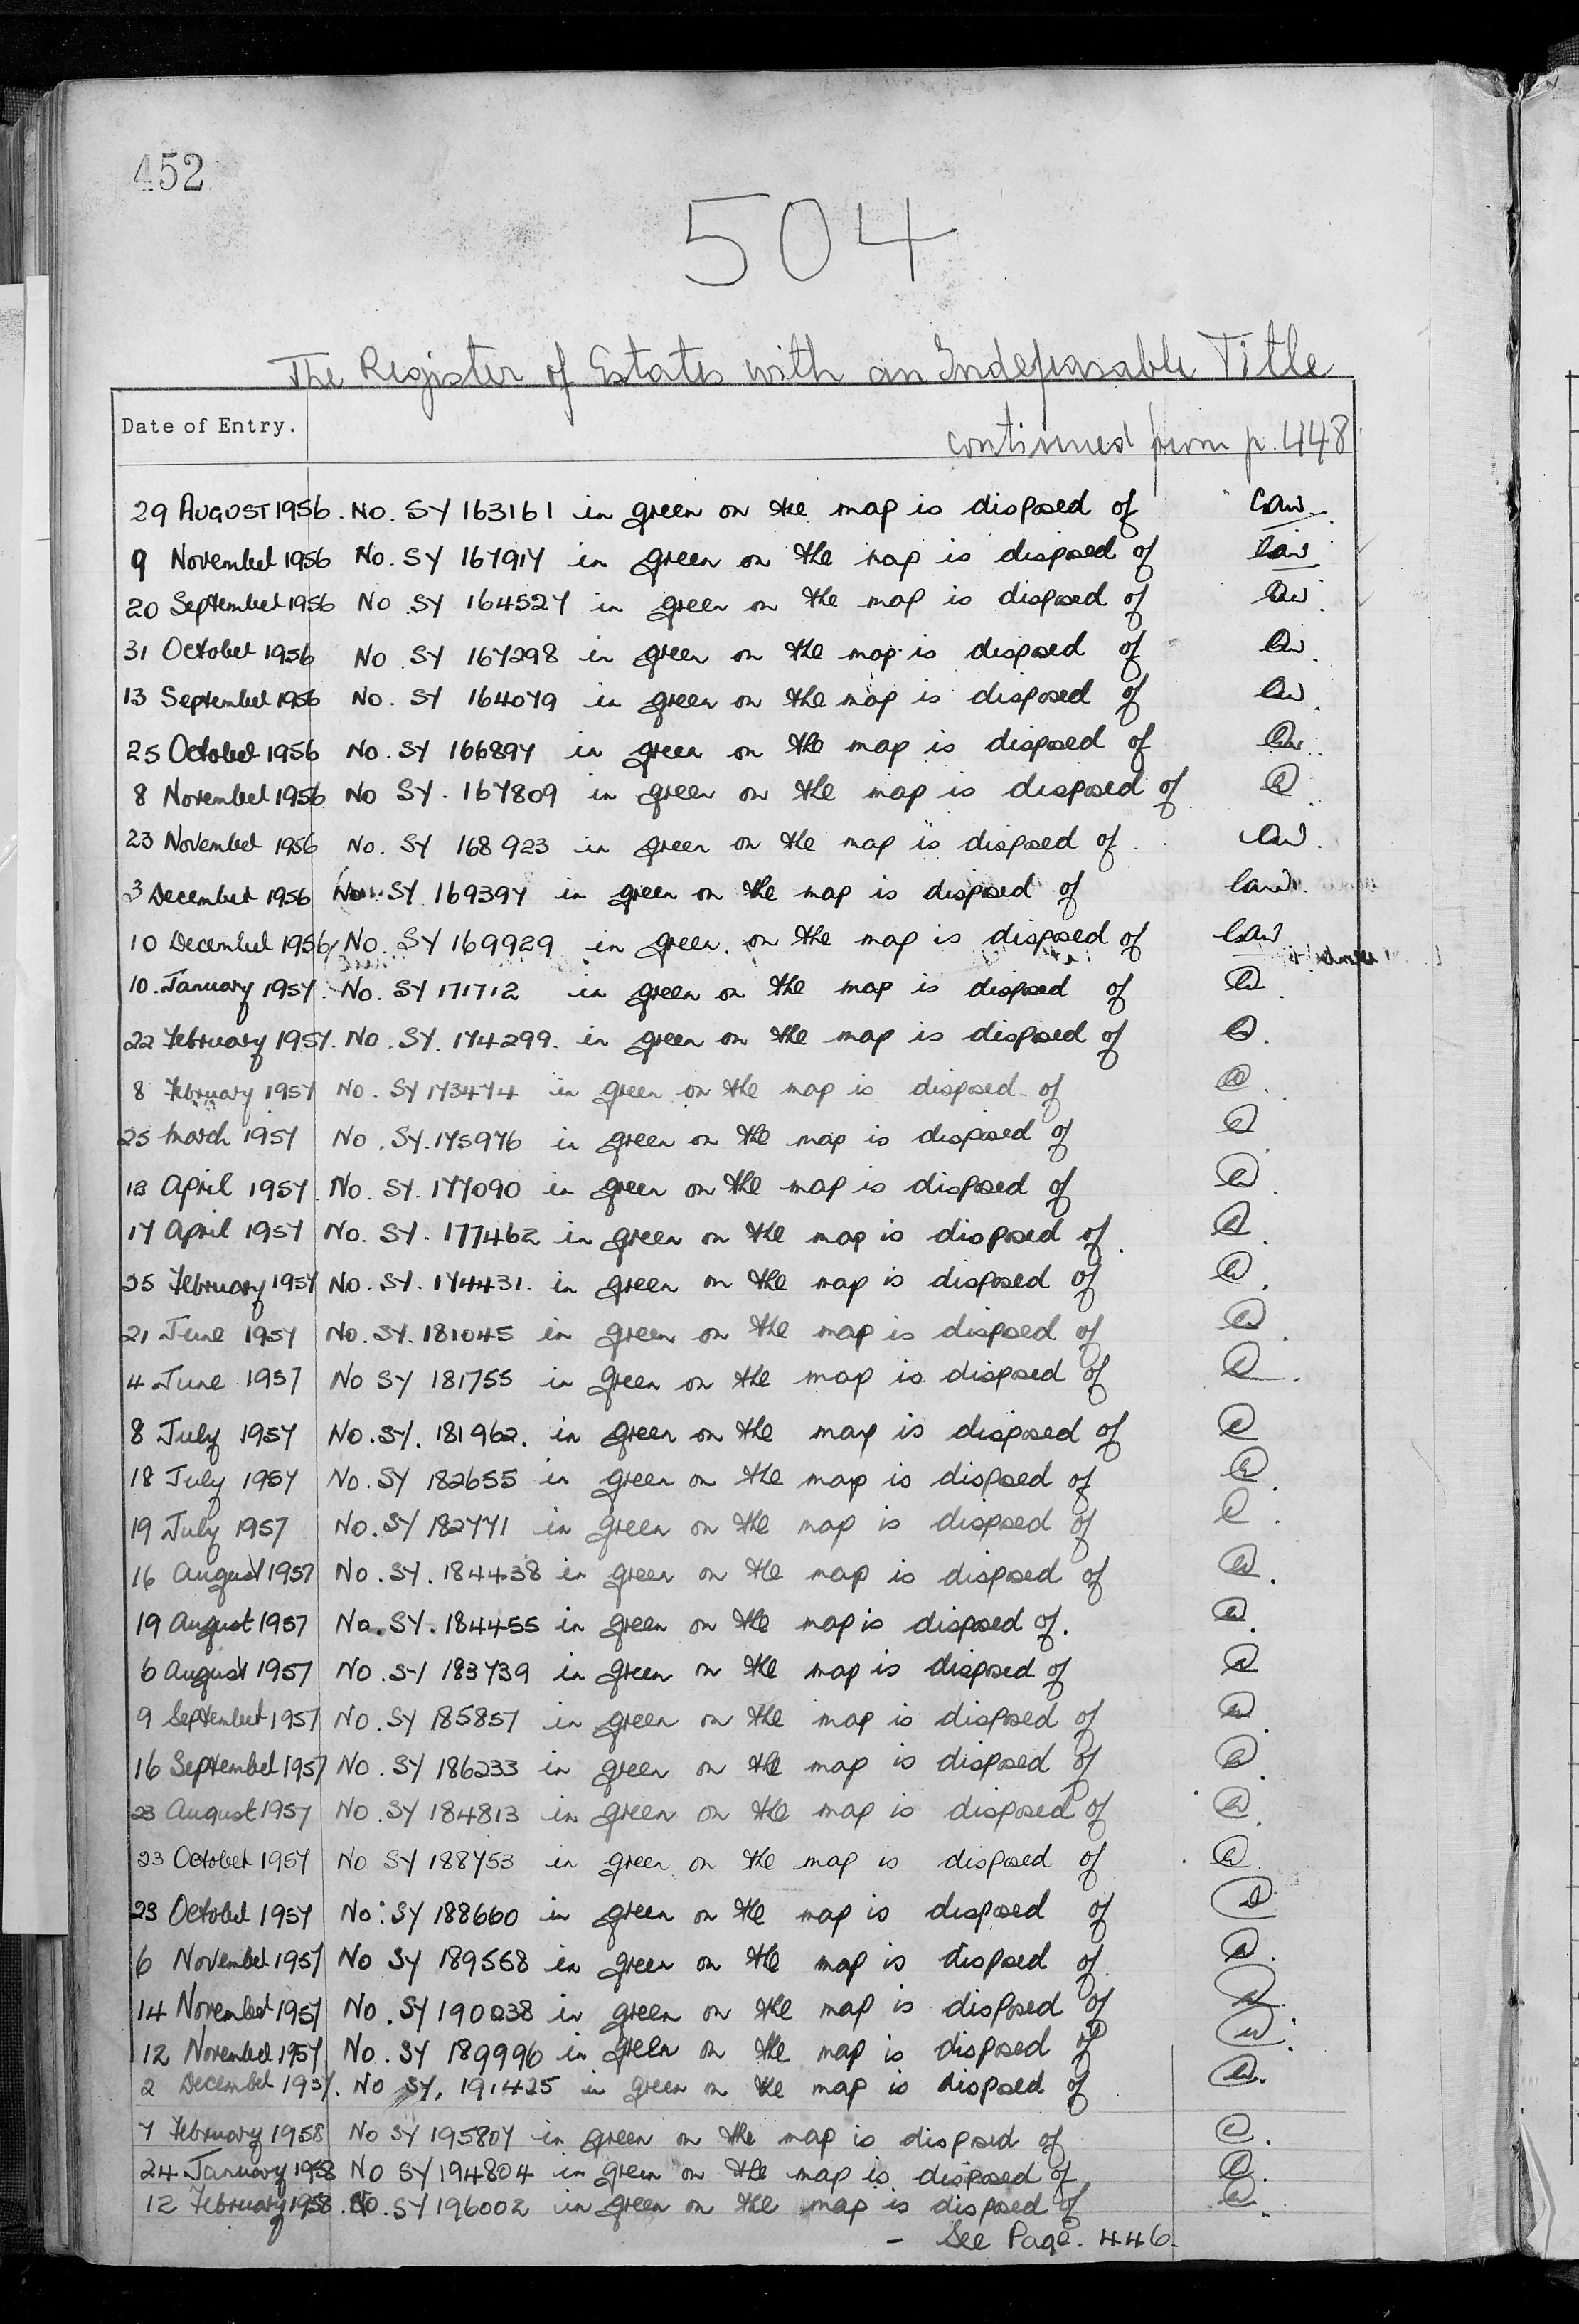 452
504
The Register of Estates with an Indefeasable Title
Date of Entry.
continued from p. 448
29 AUGUST 1956. No. SY 163161 in green on the map is disposed of
9 November 1956 No. SY 167917 in green on the map is disposed of
20 September 1956 No SY 164527 in green on the map is disposed of
31 October 1956 No. SY 167298 in green on the map is disposed of
13 September 1956 No. SY 164079 in green on the map is disposed of
25 October 1956 No. SY 166897 in green on the map is disposed of
8 November 1956 No SY. 167809 in green on the map is disposed of
23 November 1956 No. SY 168923 in green on the map is disposed of
3 December 1956 No. SY 169397 in green on the map is disposed of
10 December 1956 No. SY 169929 in green on the map is disposed of
10 January 1957. No. SY 171712 in green on the map is disposed of
22 February 1957. No. SY. 174299. in green on the map is disposed of
8 February 1957 No. SY 173474 in green on the map is disposed of
25 March 1957 No. SY. 175976 in green on the map is disposed of
12 April 1957. No. SY. 177090 in green on the map is disposed of
17 April 1957 No. SY. 177462 in green on the map is disposed of
25 February 1957 No. SY. 174431. in green on the map is disposed of
21 June 1957 No. SY. 181045 in green on the map is disposed of
4 June 1957 No SY 181755 in green on the map is disposed of
8 July 1957 No. SY. 181962. in green on the map is disposed of
18 July 1957 No. SY 182655 in green on the map is disposed of
19 July 1957 No. SY 182771 in green on the map is disposed of
16 August 1957 No. SY. 184438 in green on the map is disposed of
19 August 1957 No. SY. 184455 in green on the map is disposed of.
6 August 1957 No. SY 183739 in green on the map is disposed of
9 September 1957 No. SY 185857 in green on the map is disposed of
16 September 1957 No. SY 186233 in green on the map is disposed of
23 August 1957 No. SY 184813 in green on the map is disposed of
23 October 1957 No SY 188753 in green on the map is disposed of
23 October 1957 No. SY 188660 in green on the map is disposed of
6 November 1957 No SY 189568 in green on the map is disposed of
14 November 1957 No. SY 190238 in green on the map is disposed of
12 November 1957 No. SY 189996 in green on the map is disposed of
2 December 1957. No SY. 191425 in green on the map is disposed of
7 February 1958 No SY 195807 in green on the map is disposed of
24 January 1958 No SY 194804 in green on the map is disposed of
12 February 1958. No. SY 196002 in green on the map is disposed of
- See Page. 446.